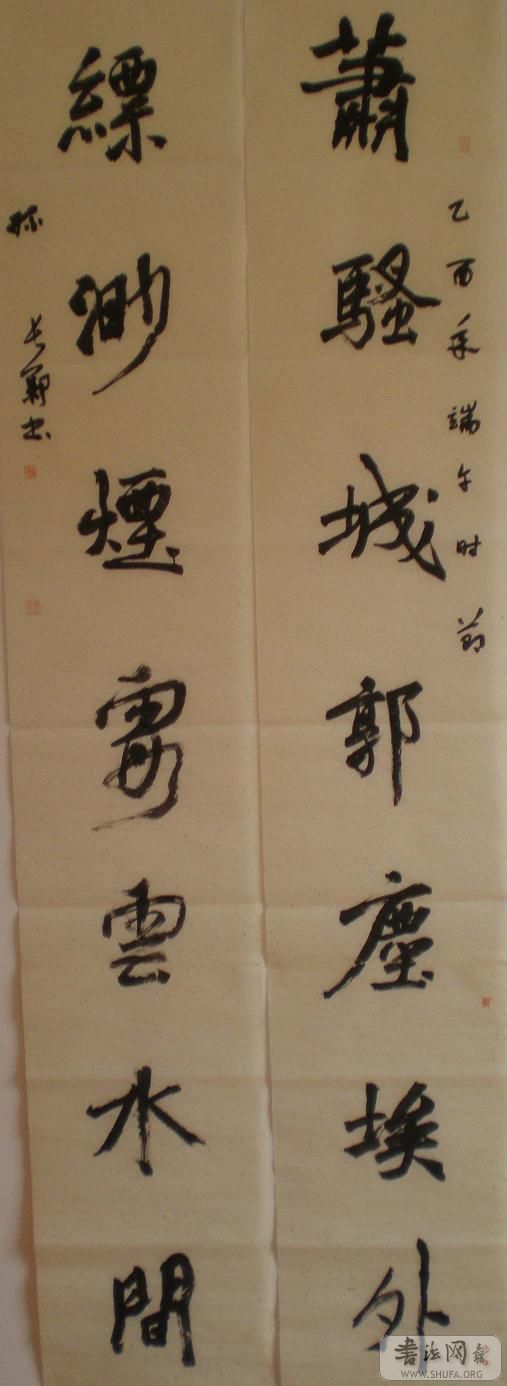 乙酉年端午时节
蕭騷城郭塵埃外
縹渺煙雲水間
長鄭书
书法网
WWW.SHUFA.ORG